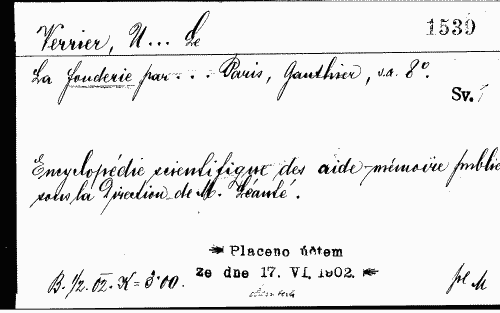 1539
Verrier, U... Le
La fonderie par... Paris, Gauthier, s.a. 8°.
Sv.
Encyclopédie scientifique des aide-mémoire publié
sous la Direction de M. Léauté.
Placeno účtem
ze dne 17. VI. 1902.
B. 1/2. 02. K = 3·00.